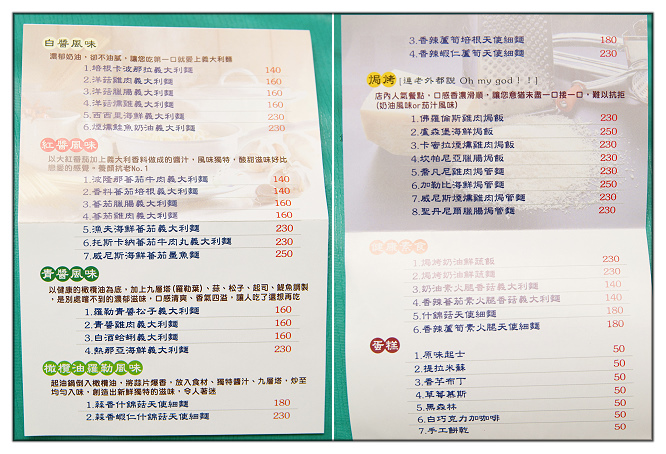 白醬風味
濃郁奶油，卻不油膩，讓您吃第一口就愛上義大利麵
1.培根卡波那拉義大利麵 140
2.洋菇雞肉義大利麵 160
3.洋菇臘腸義大利麵 160
4.洋菇燻雞義大利麵 160
5.西西里海鮮義大利麵 230
6.煙燻鮭魚奶油義大利麵 230
紅醬風味
以大紅蕃茄加上義大利香料做成的醬汁，風味獨特，酸甜滋味好比
戀愛的感覺。養顏抗老No.1
1.波隆那蕃茄牛肉義大利麵 140
2.香料蕃茄培根義大利麵 140
3.蕃茄臘腸義大利麵 160
4.蕃茄雞肉義大利麵 160
5.漁夫海鮮蕃茄義大利麵 230
6.托斯卡納蕃茄牛肉丸義大利麵 230
7.威尼斯海鮮蕃茄墨魚麵 250
青醬風味
以健康的橄欖油為底，加上九層塔(羅勒葉)、蒜、松子、起司、鯷魚調製
，是別處嚐不到的濃郁滋味，口感清爽、香氣四溢，讓人吃了還想再吃
1.羅勒青醬松子義大利麵 160
2.青醬雞肉義大利麵 160
3.白酒蛤蜊義大利麵 160
4.熱那亞海鮮義大利麵 230
橄欖油羅勒風味
起油鍋倒入橄欖油，將蒜片爆香，放入食材、獨特醬汁、九層塔，炒至
均勻入味，創造出新鮮獨特的滋味，令人著迷
1.蒜香什錦菇天使細麵 180
2.蒜香蝦仁什錦菇天使細麵 230
3.香辣蘆筍培根天使細麵 180
4.香辣蝦仁蘆筍天使細麵 230
焗烤 [連老外都說 Oh my god！！]
店內人氣餐點，口感香濃滑順，讓您意猶未盡一口接一口，難以抗拒
(奶油風味or茄汁風味)
1.佛羅倫斯雞肉焗飯 230
2.盧森堡海鮮焗飯 250
3.卡審拉煙燻雞肉焗飯 230
4.坎帕尼亞臘腸焗飯 230
5.喬凡尼雞肉焗管麵 230
6.加勒比海鮮焗管麵 250
7.威尼斯煙燻雞肉焗管麵 230
8.聖丹尼爾臘腸焗管麵 230
1.焗烤奶油鮮蔬飯 230
2.焗烤奶油鮮蔬麵 230
3.奶油素火腿香菇義大利麵 140
4.香辣蕃茄素火腿香菇義大利麵 140
5.什錦菇天使細麵 180
6.香辣蘆筍素火腿天使細麵 180
蛋糕
1.原味起士 50
2.提拉米蘇 50
3.香芋布丁 50
4.草莓慕斯 50
5.黑森林 50
6.白巧克力加咖啡 50
7.手工餅乾 50